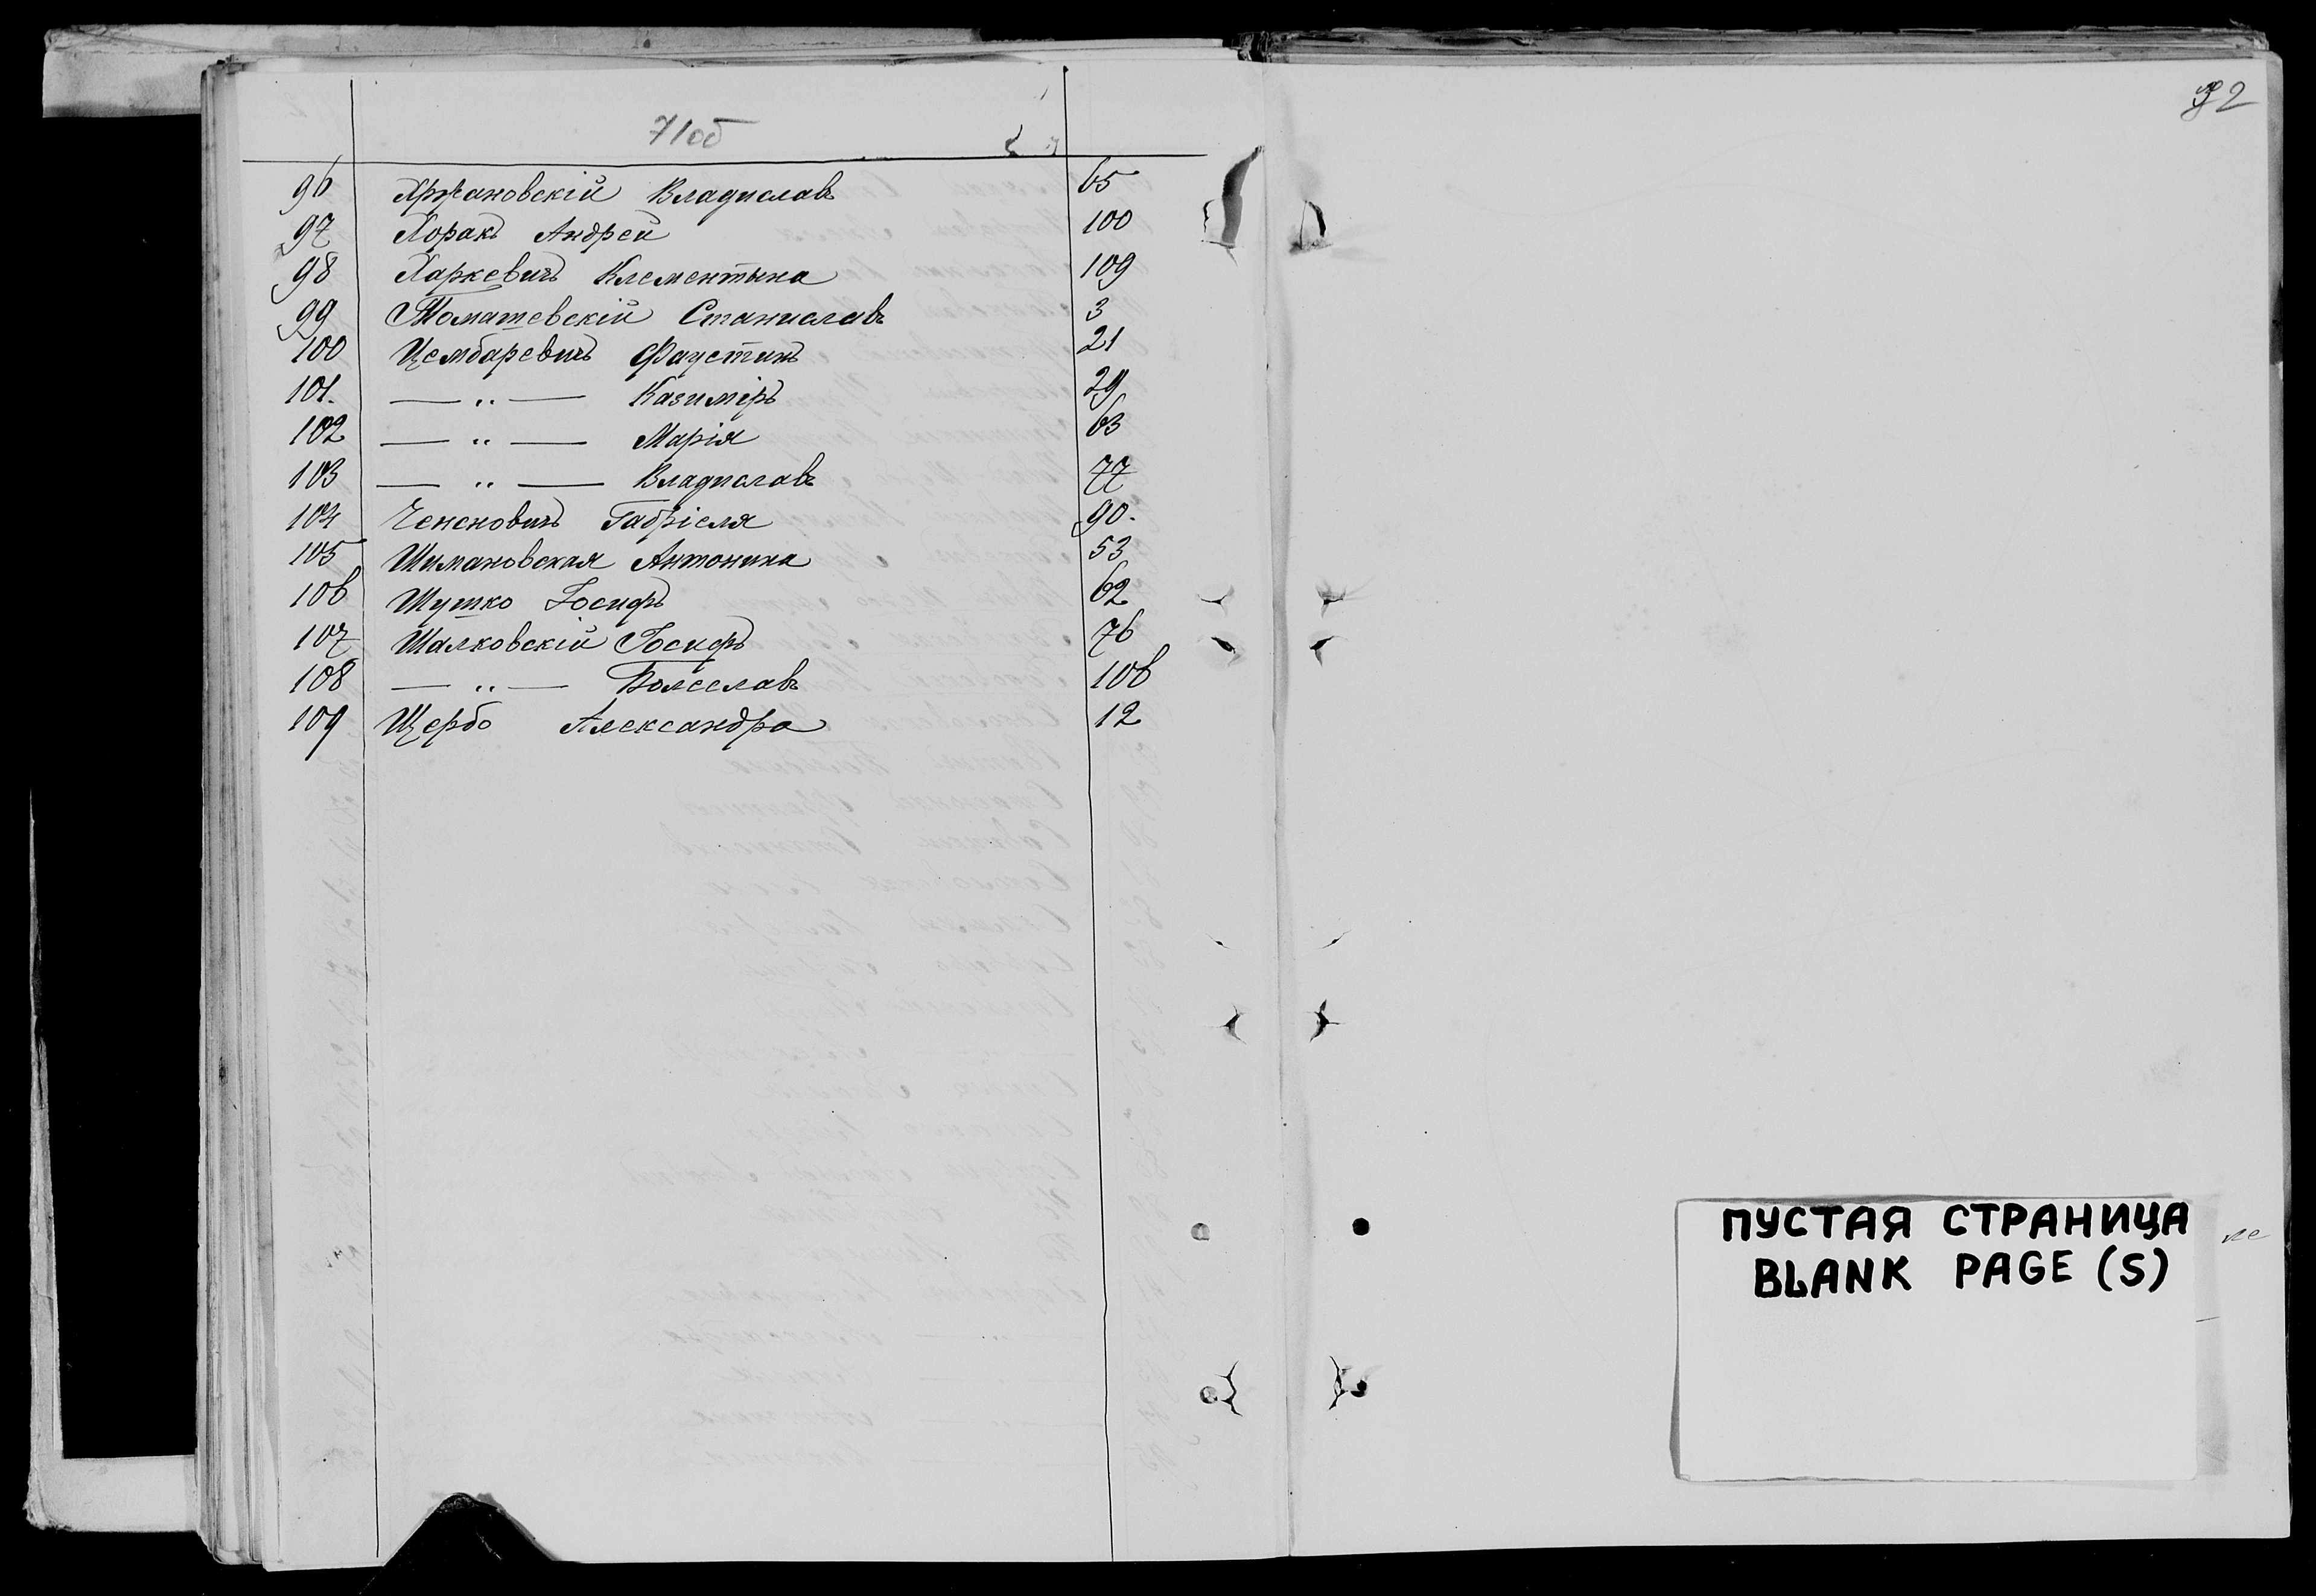 71об
96 Хржановскій Владиславъ 65
97 Хоракъ Андрей 100
98 Харкевичъ Клементына 109
99 Томашевскій Станиславъ 3
100 Цембаревичъ Фаустинъ 21
101. — „ — Казиміръ 29
102 — „ — Марія 63
103 — „ — Владиславъ 77
104 Габріеля 90.
105 Шимановская Антонина 53
106 Шушко Іосифъ 62
107 Шалковскій Іосифъ 76
108 — „ — Болеславъ 106
109 Щербо Александра 12
ПУСТАЯ СТРАНИЦА
BLANK PAGE (S)